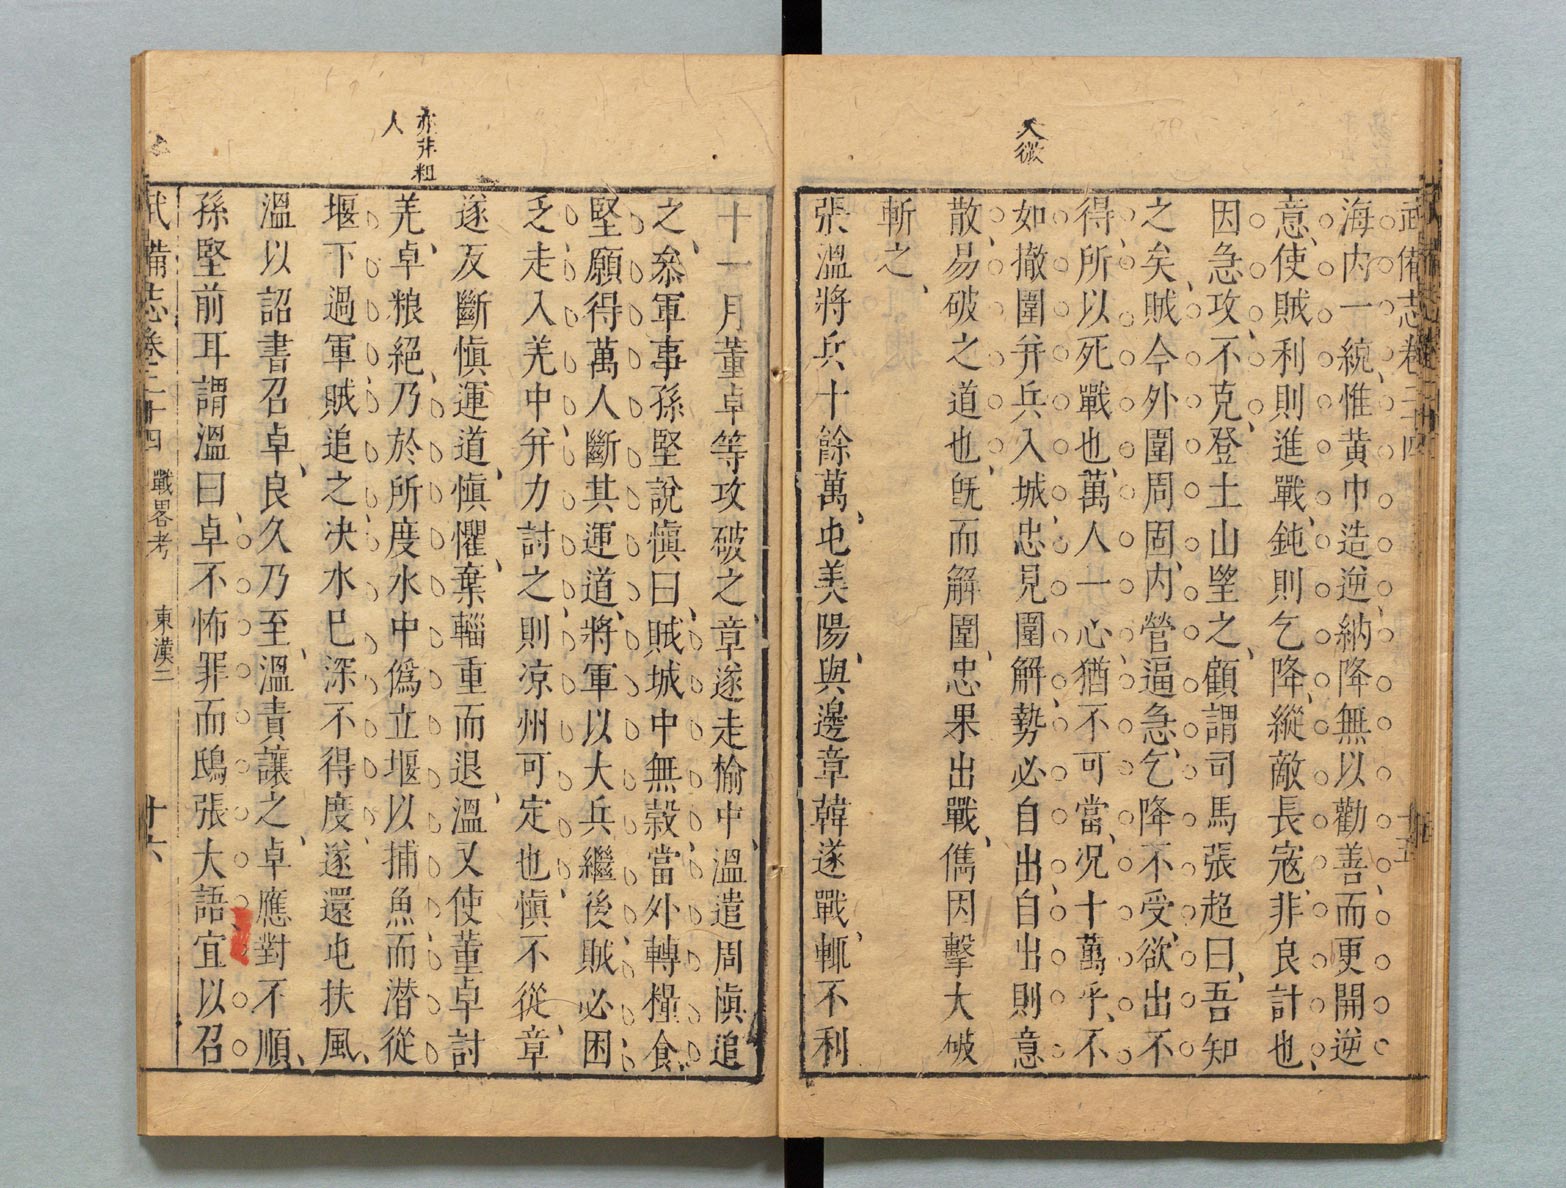 大微
武備志卷二十四
十五
海内一統惟黄巾造逆納降無以勸善而更開逆
意使賊利則進戰鈍則乞降縱敵長寇非良計也
因急攻不克登土山望之顧謂司馬張超曰吾知
之矣賊今外圍周固内營逼急乞降不受欲出不
得所以死戰也萬人一心猶不可當况十萬乎不
如撤圍并兵入城忠見圍解勢必自出自出則意
散易破之道也既而解圍忠果出戰儁因擊大破
斬之
張溫將兵十餘萬屯美陽與邊章韓遂戰輒不利
亦非粗
人
十一月董卓等攻破之章遂走榆中溫遣周愼追
之叅軍事孫堅說愼曰賊城中無穀當外轉糧食
堅願得萬人斷其運道將軍以大兵繼後賊必困
乏走入羌中并力討之則凉州可定也愼不從章
遂反斷愼運道愼懼棄輜重而退溫又使董卓討
羌卓粮絕乃於所度水中僞立堰以捕魚而潜從
堰下過軍賊追之决水已深不得度遂還屯扶風
溫以詔書召卓良久乃至溫責讓之卓應對不順
孫堅前耳謂溫曰卓不怖罪而鴟張大語宜以召
武備志卷二十四 戰畧考 東漢二 十六